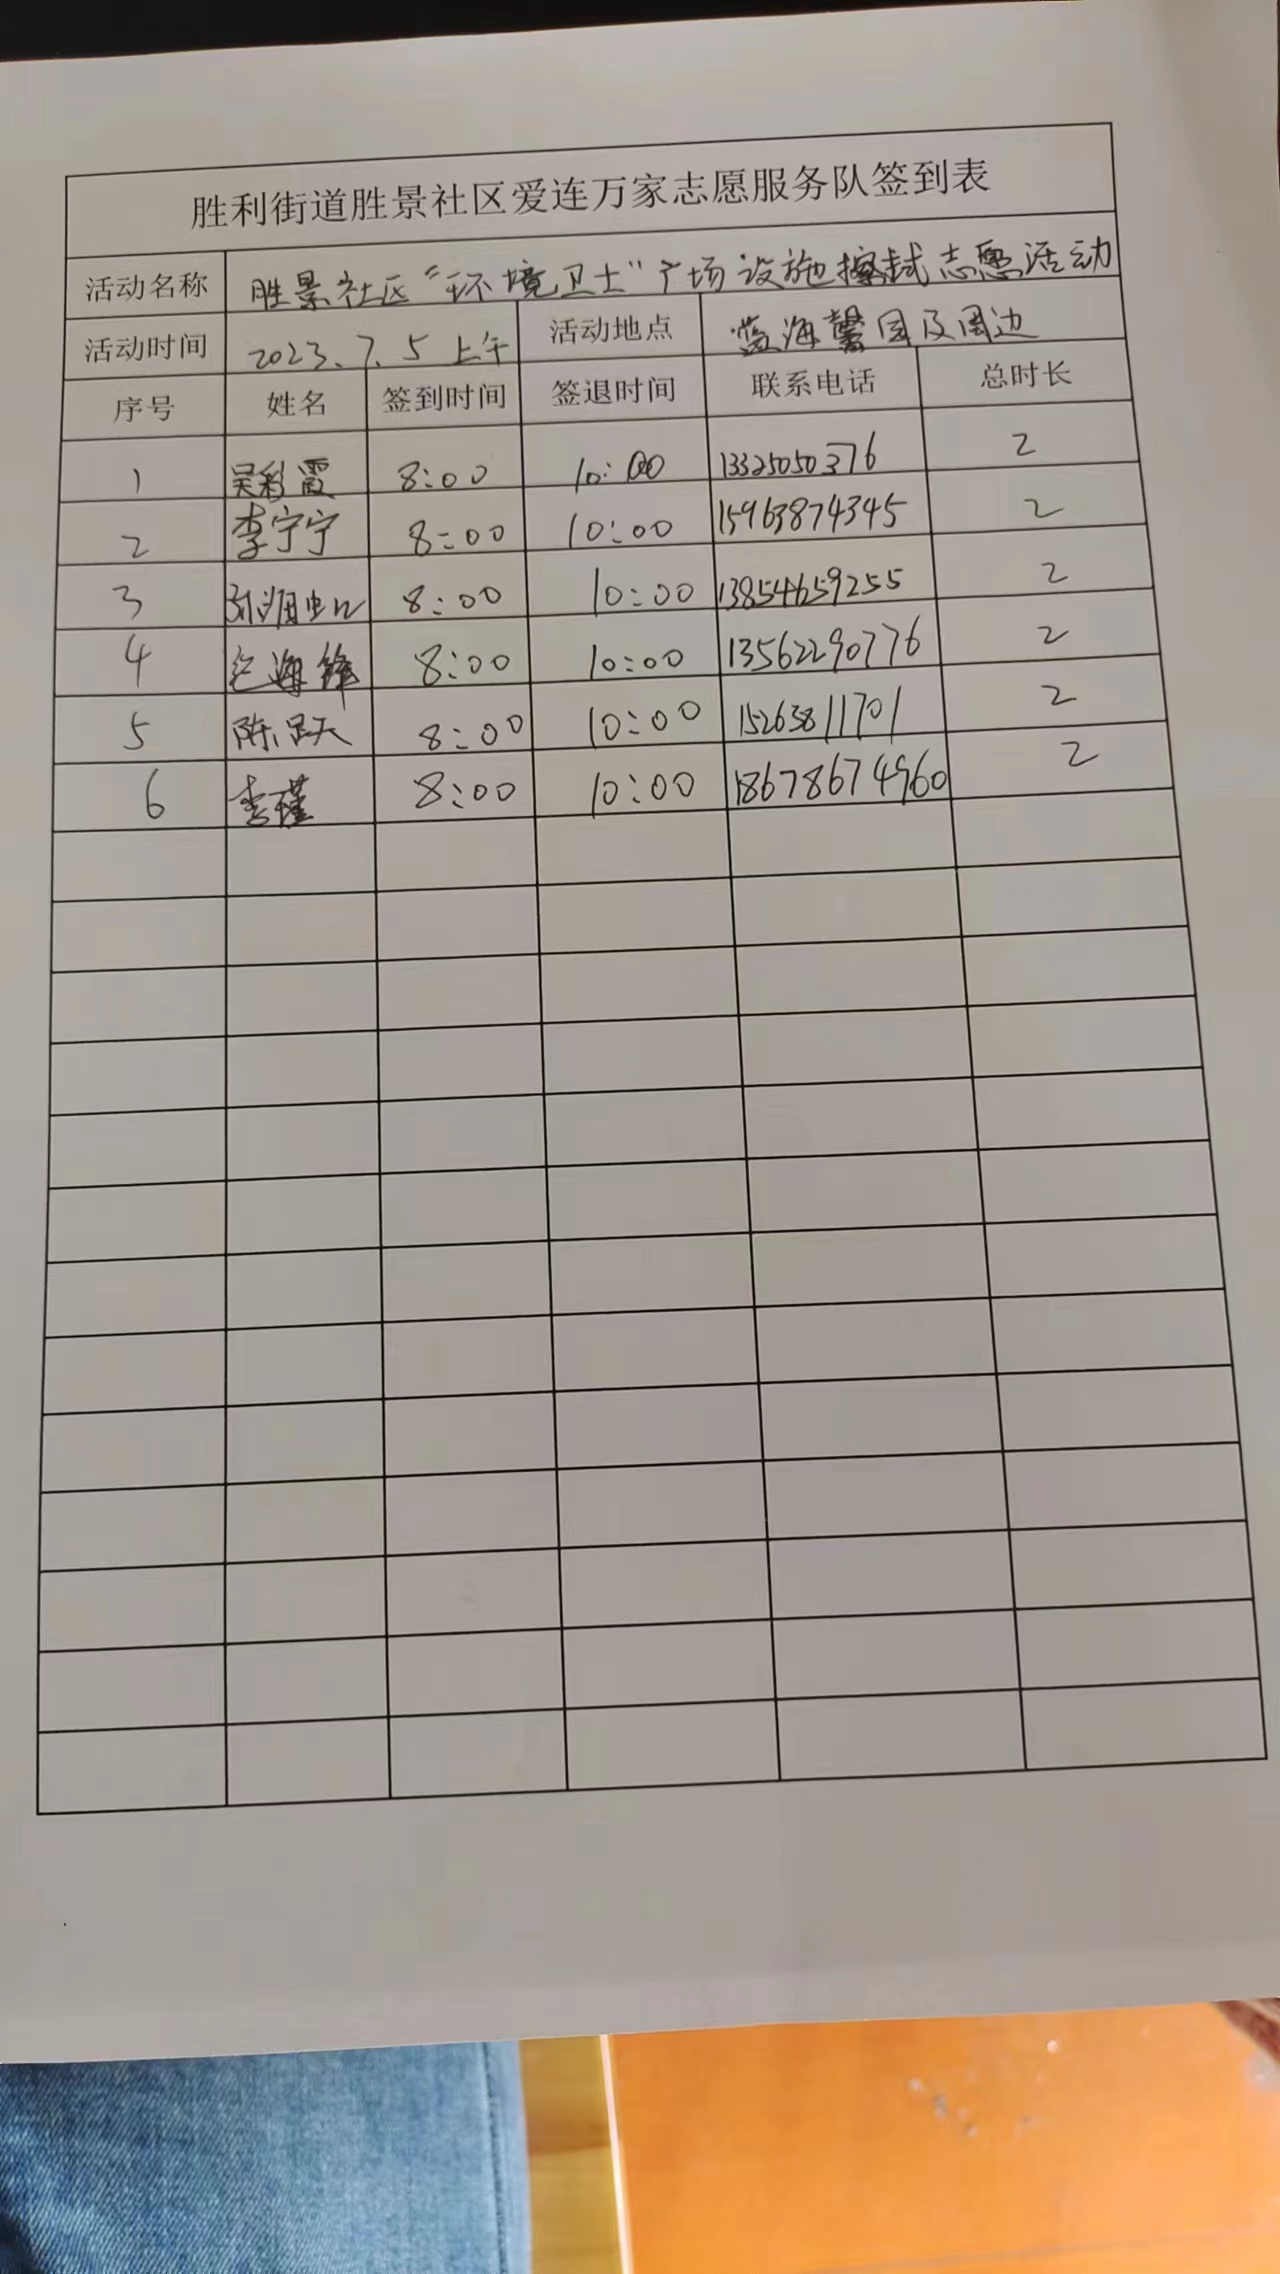 胜利街道胜景社区爱连万家志愿服务队签到表
活动名称 胜景社区“环境卫士”广场设施擦拭志愿活动
活动时间 2023.7.5 上午 活动地点 蓝海馨园及周边
序号 姓名 签到时间 签退时间 联系电话 总时长
1 吴彩霞 8:00 10:00 13325050376 2
2 李宁宁 8:00 10:00 15963874345 2
3 8:00 10:00 13854659255 2
4 海锋 8:00 10:00 13562290776 2
5 陈跃 8:00 10:00 15263811701 2
6 李瑾 8:00 10:00 18678674960 2